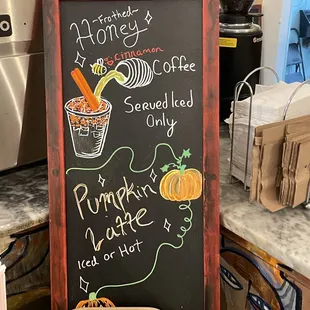 -Frothed-
Honey
& Cinnamon
Coffee
Served Iced
Only
Pumpkin
Latte
Iced or Hot